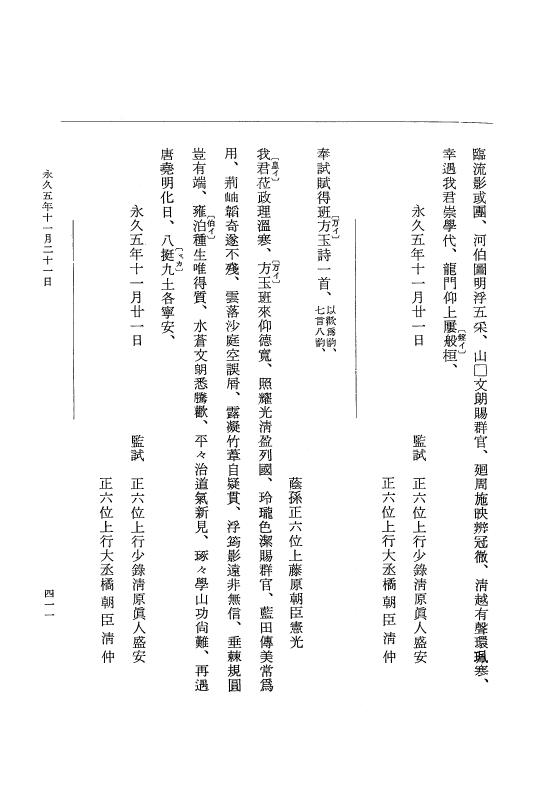 臨流影或團、河伯圖明浮五采、山□文朗賜群官、廻周施映辨冠微、淸越有聲環珮寒、
幸遇我君崇學代、龍門仰上屢般桓、
〔盤イ〕
永久五年十一月廿一日
監試　正六位上行少錄淸原眞人盛安
正六位上行大丞橘朝臣淸仲
奉試賦得班方玉詩一首、以歡爲韵、七言八韵、
〔万イ〕
蔭孫正六位上藤原朝臣憲光
我君莅政理溫寒、方玉班來仰德寬、照耀光淸盈列國、玲瓏色潔賜群官、藍田傳美常爲
〔皇イ〕
〔万イ〕
用、荊岫韜奇遂不殘、雲落沙庭空誤屑、露凝竹葦自疑貫、浮筠影遠非無信、垂棘規圓
豈有端、雍泊種生唯得質、水蒼文朗悉騰歡、平々治道氣新見、琢々學山功尙難、再遇
〔伯イ〕
唐堯明化日、八挺九土各寧安、
永久五年十一月廿一日
監試　正六位上行少錄淸原眞人盛安
正六位上行大丞橘朝臣淸仲
永久五年十一月二十一日
四一一